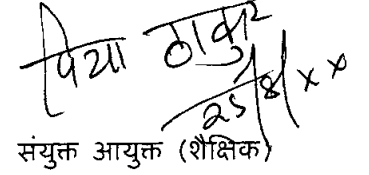 पिया ठाकुर
25/8/xx
संयुक्त आयुक्त (शैक्षिक)